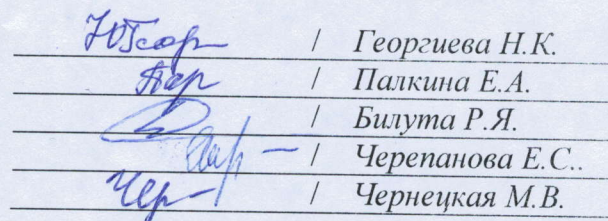 / Георгиева Н.К.
/ Палкина Е.А.
/ Билута Р.Я.
/ Черепанова Е.С..
Чер- / Чернецкая М.В.